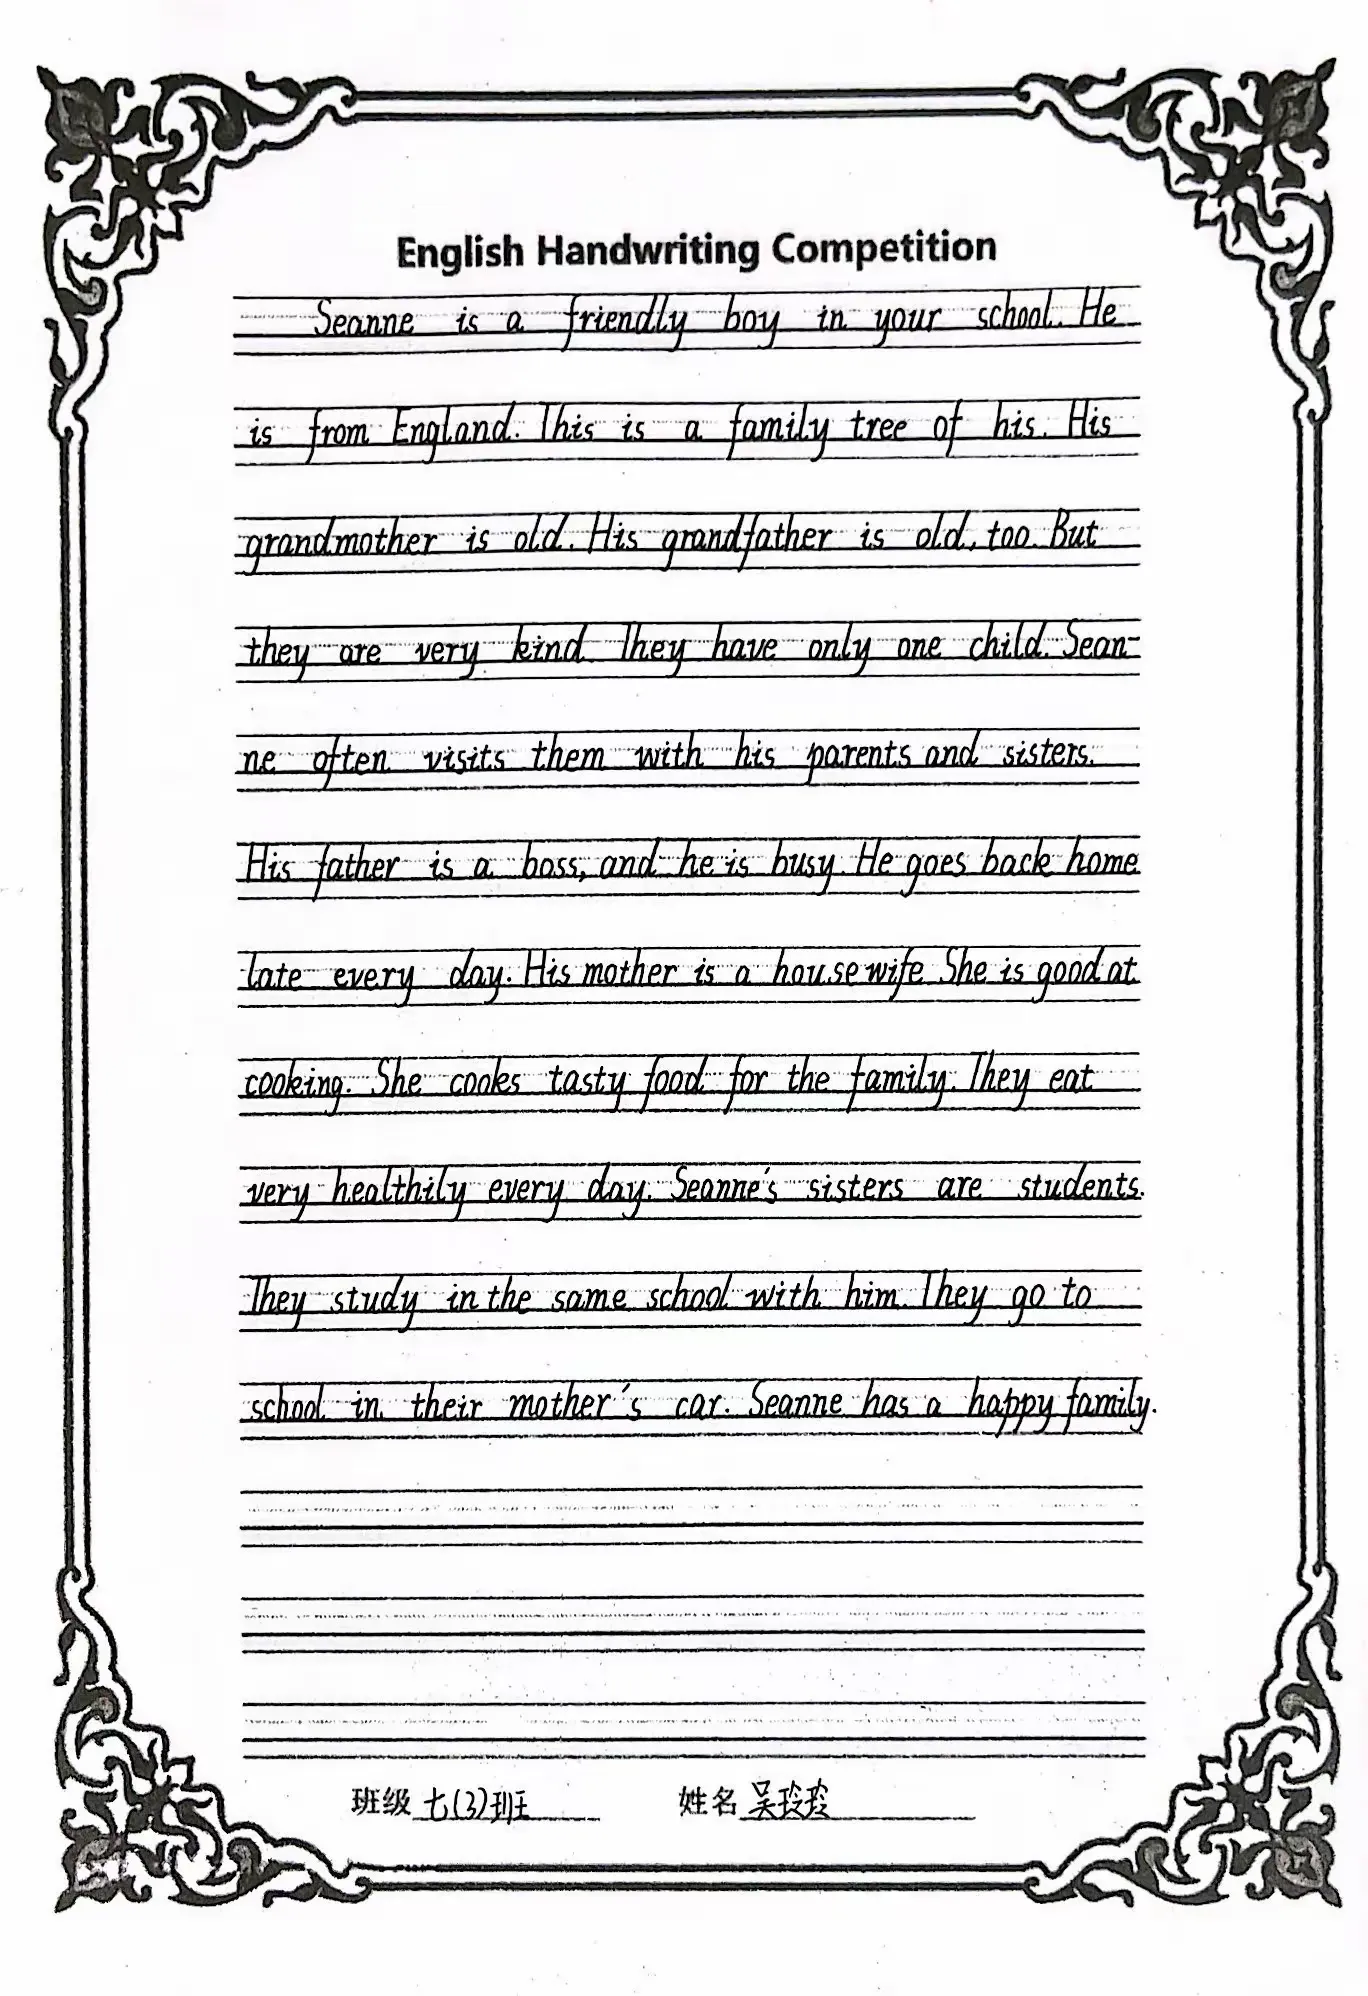 English Handwriting Competition
Seanne is a friendly boy in your school. He
is from England. This is a family tree of his. His
grandmother is old. His grandfather is old, too. But
they are very kind. They have only one child. Sean-
ne often visits them with his parents and sisters.
His father is a boss, and he is busy. He goes back home
late every day. His mother is a housewife. She is good at
cooking. She cooks tasty food for the family. They eat
very healthily every day. Seanne's sisters are students.
They study in the same school with him. They go to
school in their mother's car. Seanne has a happy family.
班级 七(3)班 姓名 吴玲玲